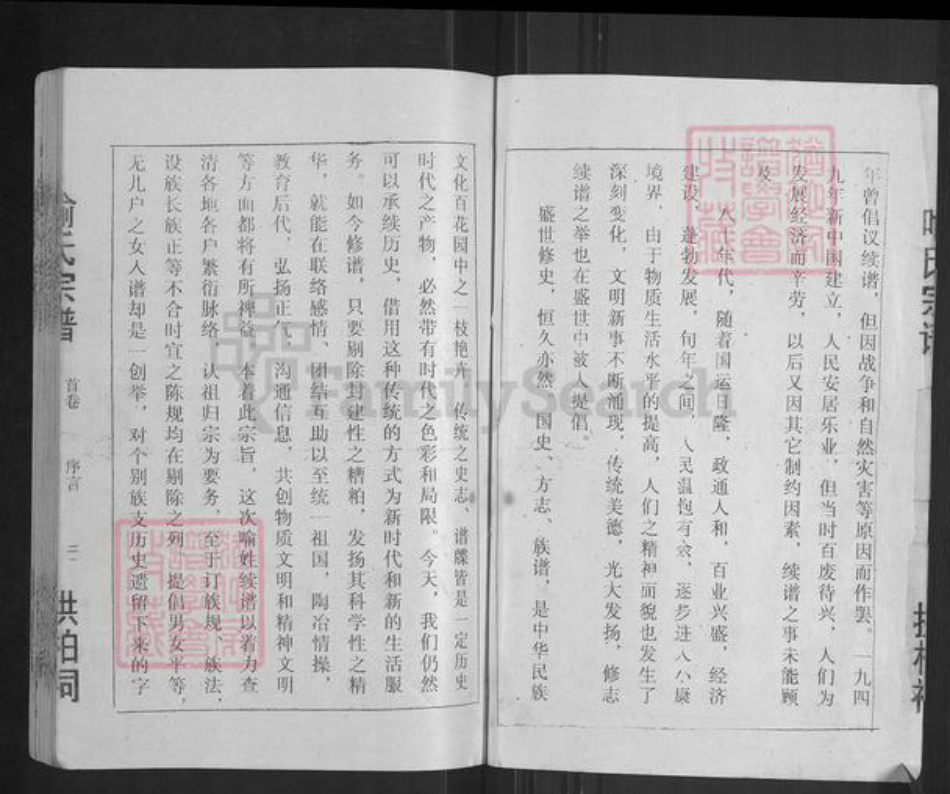 年曾倡议续谱，但因战争和自然灾害等原因而作罢。一九四
九年新中国建立，人民安居乐业，但当时百废待兴，人们为
发展经济而辛劳，以后又因其它制约因素，续谱之事未能顾
及。
八十年代，随着国运日隆，政通人和，百业兴盛，经济
建设，蓬勃发展，旬年之间，人民温饱有余，逐步进入小康
境界，由于物质生活水平的提高，人们之精神面貌也发生了
深刻变化，文明新事不断涌现，传统美德，光大发扬，修志
续谱之举也在盛世中被人提倡。
盛世修史，恒久亦然，国史、方志、族谱，是中华民族
文化百花园中之一枝艳卉，传统之史志、谱牒皆是一定历史
时代之产物，必然带有时代之色彩和局限。今天，我们仍然
可以承续历史，借用这种传统的方式为新时代和新的生活服
务。如今修谱，只要剔除封建性之糟粕，发扬其科学性之精
华，就能在联络感情、团结互助以至统一祖国，陶冶情操，
教育后代，弘扬正气，沟通信息，共创物质文明和精神文明
等方面都将有所裨益，本着此宗旨，这次喻姓续谱以着力查
清各地各户繁衍脉络，认祖归宗为要务，至于订族规、族法，
设族长族正等不合时宜之陈规均在剔除之列，提倡男女平等，
无儿户之女入谱却是一创举，对个别族支历史遗留下来的字
喻氏宗谱
首卷
序言
三
洪柏祠
FamilySearch